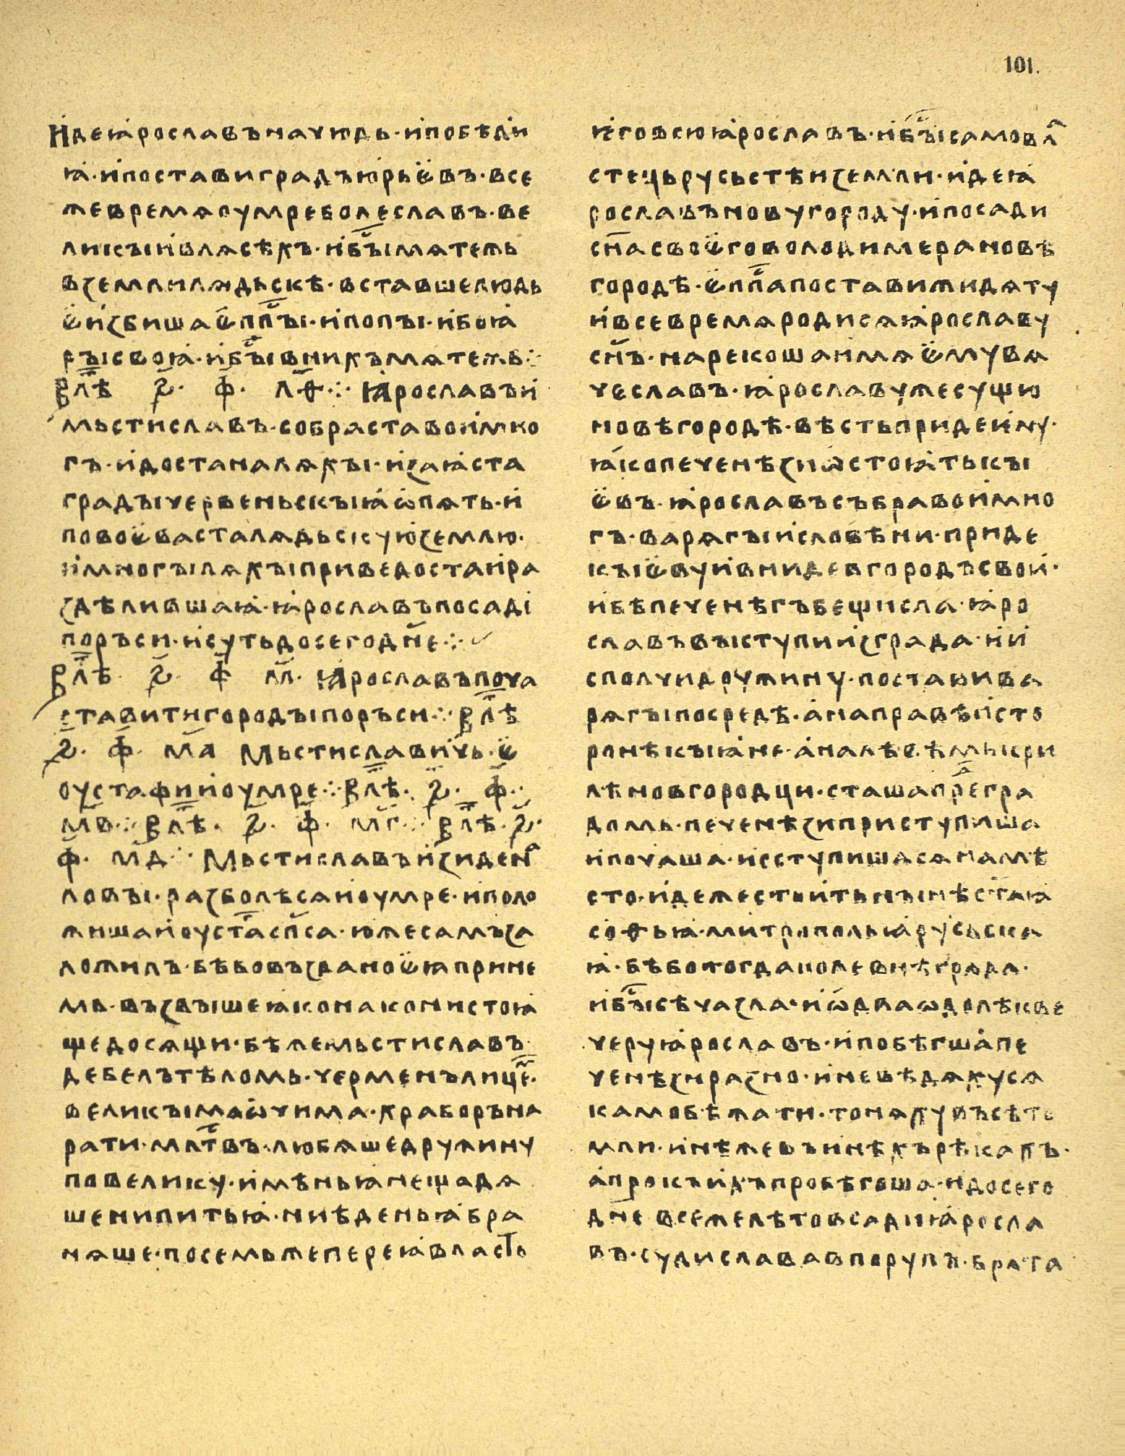 101.
Иде ꙗрославъ на чюдь · и побѣди
ꙗ · и постави градъ юрьєвъ · в се
же времѧ оумре болеславъ · ве
ликыи в лѧсѣхъ · и бы҃ мѧтежь
в земли лѧдьскѣ · вставше людь
є избиша єпп҃ы · и попы · и боꙗ
ры своꙗ · и бы҃ в них мѧтежь ⁘
В лѣ҃ ҂ѕ҃ · ф҃ · л҃ѳ ⁘ Ꙗрославъ и
мьстиславъ · собраста вои мно
гъ · идоста на лѧхы · и заꙗста
грады червеньскыꙗ ѡпѧть · и
повоєваста лѧдьскую землю ·
и многы лѧхы приведоста и ра
здѣливша ꙗ · ꙗрославъ посади
по ръси · и суть до сего дн҃е ⁘
В лѣ҃ ҂ѕ҃ · ф҃ · м҃ · Ꙗрославъ поча
ставити городы по ръси ⁘ В лѣ҃
҂ѕ҃ · ф҃ · м҃а Мьстиславичь є
оустафии оумре ⁘ В лѣ҃ · ҂ѕ҃ · ф҃ ·
м҃в ⁘ В лѣ҃ · ҂ѕ҃ · ф҃ · м҃г ⁘ В лѣ҃ · ҂ѕ҃ ·
ф҃ · м҃д ⁘ Мьстиславъ изиде н
ловы · разболѣсѧ и оумре · и поло
жиша и оу ст҃аг сп҃са · юже самъ за
ложилъ · бѣ бо възданоєꙗ при не
мь · възвыше ꙗко на кони стоꙗ
ще досѧщи · бѣ же мьстиславъ
дебелъ тѣломь · черменъ лицем҃ ·
великыма ѡчима · храборъ на
рати · млт҃въ · любѧше дружину
по велику · имѣньꙗ не щадѧ
ше ни питьꙗ · ни ѣденьꙗ бра
нѧше · посемь же переꙗ власть
ꙗго всю ꙗрославъ · и бы҃ самовла
стець русьстѣи земли · иде ꙗ
рославъ новугороду · и посади
сн҃а своєго володимера новѣ
городѣ · єпп҃а постави жидѧту
и в се времѧ родисѧ ꙗрославу
сн҃ъ · нарекоша имѧ єму вѧ
чеславъ · ꙗрославу же сущю
новѣгородѣ · вѣсть приде иму ·
ꙗко печенѣзи ѡстоꙗть кы
євъ · ꙗрославъ събра вои мно
гъ · варѧгы и словѣни · приде
кыєву и вниде в городъ свои ·
и бѣ печенѣгъ бе щисла · ꙗро
славъ выступи из града · и и
сполчи дружину · постави ва
рѧгы посредѣ · а на правѣи сто
ронѣ кыꙗне · а на лѣвѣмь кри
лѣ новгородци · сташа пре град
домь · печенѣзи приступиша
и почаша · и сступишасѧ на мѣ
сто · идеже стоить нынѣ ст҃аꙗ
софьꙗ · митрополья русьска
ꙗ · бѣ бо тогда поле внѣ града ·
и бы҃ сѣча зла · и ѡдва ѡдолѣ к ве
черу ꙗрославъ · и побѣгша пе
ченѣзи разно · и не вѣдѧху сѧ
камо бѣжати · тонѧху въ сѣто
мли · инѣже въ инѣхъ рѣкахъ ·
а прокъ ихъ пробѣгоша и до сего
дн҃е в се же лѣто всади ꙗросла
въ · судислава в порупъ · брата